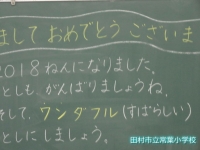 まして おめでとう ございま
2018ねんになりました。
としも がんばりましょうね。
そして、ワンダフル(すばらしい)
としに しましょう。
田村市立常葉小学校